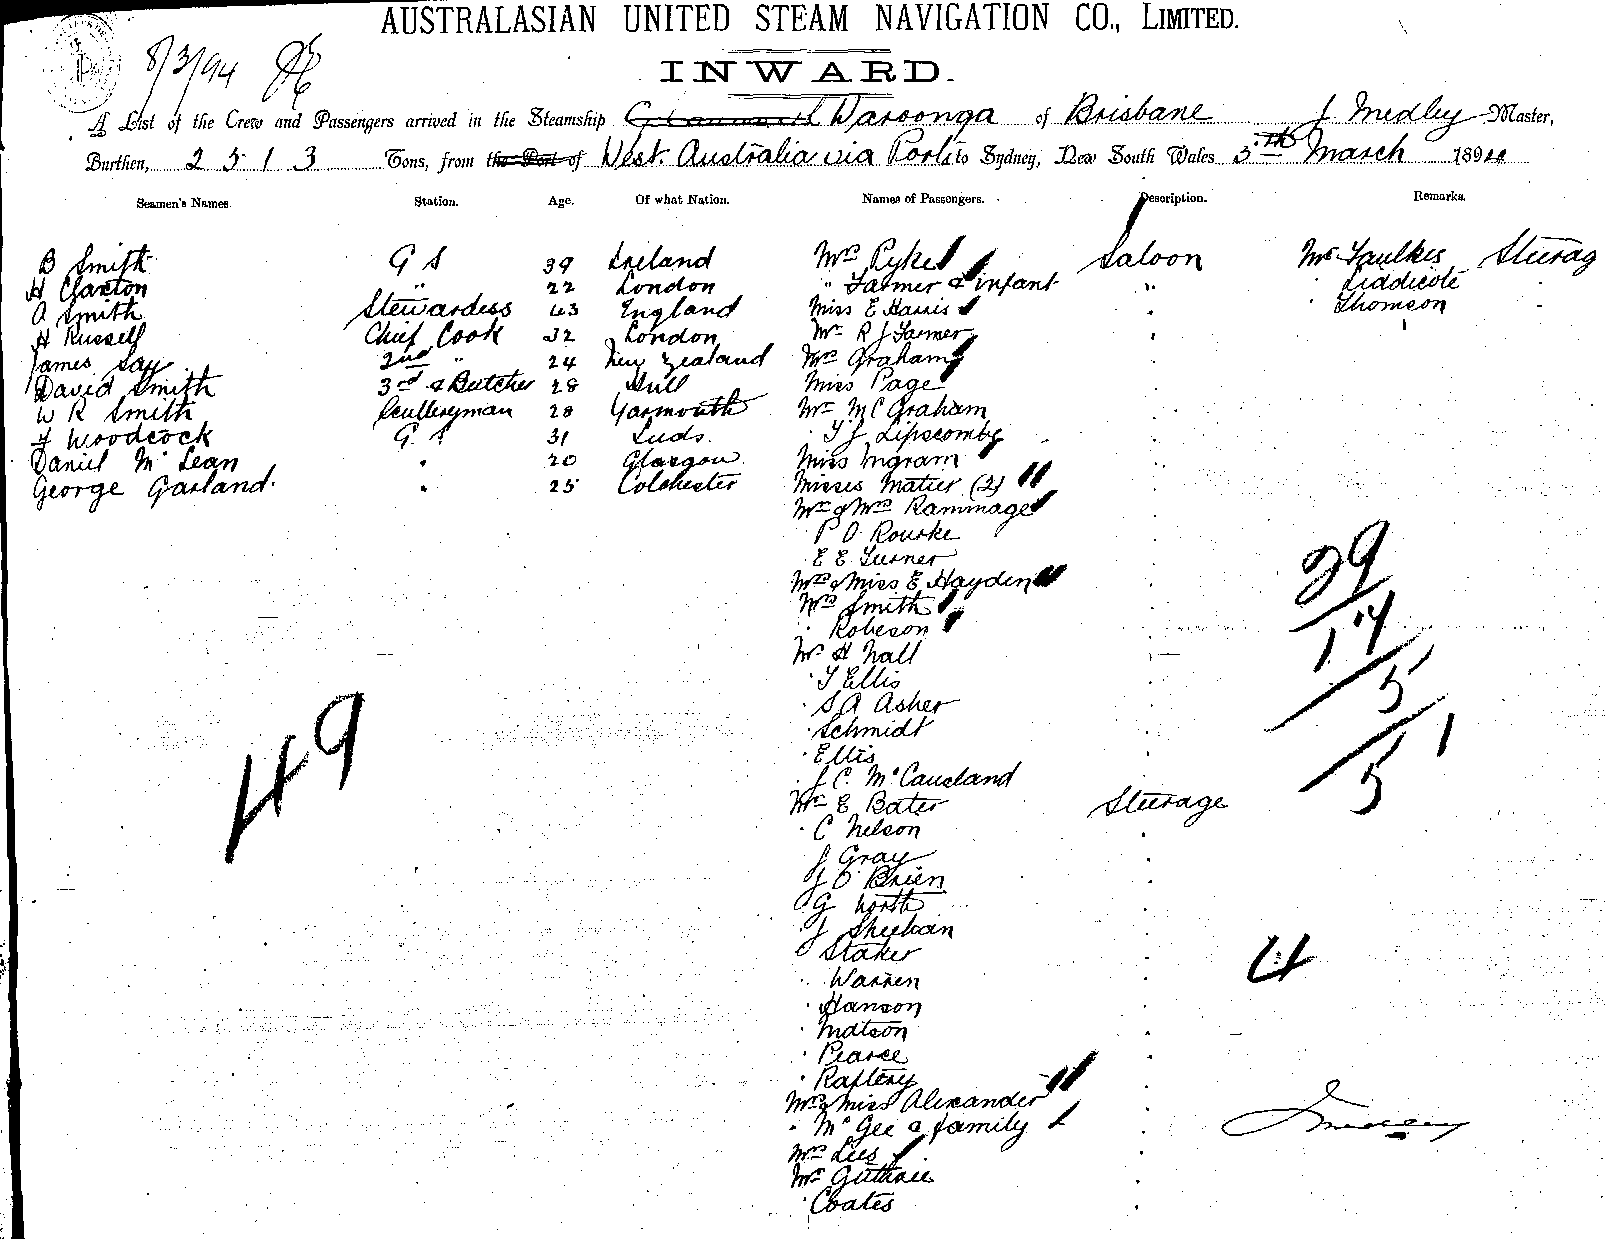 AUSTRALASIAN UNITED STEAM NAVIGATION CO., LIMITED.
8/3/94
INWARD.
A List of the Crew and Passengers arrived in the Steamship Waroonga of Brisbane J Medley Master,
Burthen, 2513 Tons, from the Port of West. Australia via Ports to Sydney, New South Wales 5th March 1894
Seamen's Names. Station. Age. Of what Nation. Names of Passengers. Description. Remarks.
B Smith G S 39 Ireland Mrs Pyke Saloon Mr Faulkes Steerag
H Claxton " 22 London " Farmer & infant " Liddicote
A Smith Stewardess 43 England Miss E Harris Thomson
H Russell Chief Cook 32 London Mr R J Farmer
James Say 2nd " 24 New Zealand Mrs Graham
David Smith 3rd & Butcher 28 Hull Miss Page
W R Smith Sculleryman 28 Yarmouth Mr McGraham
F Woodcock G S 31 Leeds. T J Lipscombe
Daniel McLean " 20 Glasgow Miss Ingram
George Garland. " 25 Colchester Misses Matier (2)
Mr & Mrs Rammage
P O Rourke
E E Turner
Mrs & Miss E Hayden
Mrs Smith
Robeson
Mr H Nall
T Ellis
S A Asher
Schmidt
Ellis
J C McCausland
Mr E Bater Steerage
C Nelson
J Gray
J O Brien
G North
J Sheehan
Staker
Warren
Hanson
Matson
Pearce
Raftery
Mrs & Miss Alexander
" McGee & family
Mrs Lees
Mr Guthrie
Coates
49
29
17
5
51
4
J Medley